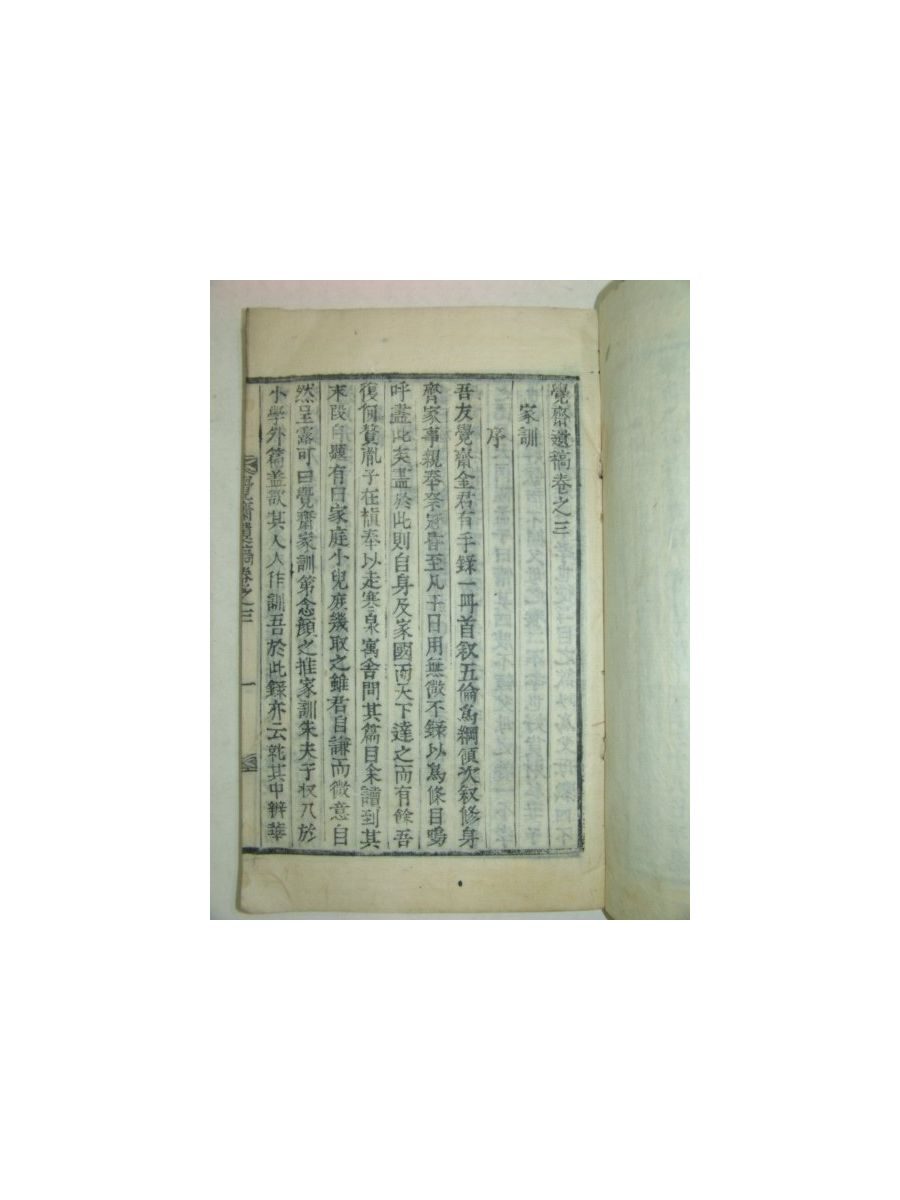 覺齋遺稿卷之三
家訓
序
吾友覺齋金君有手錄一冊首敘五倫爲綱領次敘修身
齊家事親奉祭冠昏至凡千日用無微不錄以爲條目嗚
呼盡此矣盡於此則自身及家國而天下達之而有餘吾
復何贅胤子在槙奉以走寒泉寓舍間其篇目余讀到其
末段自題有曰家庭小兒庶幾取之雖君自謙而微意自
然呈露可曰覺齋家訓第念顏之推家訓朱夫子收入於
小學外篇盖欲其人人作訓吾於此錄亦云然其中辨華
覺齋遺稿卷之三 一